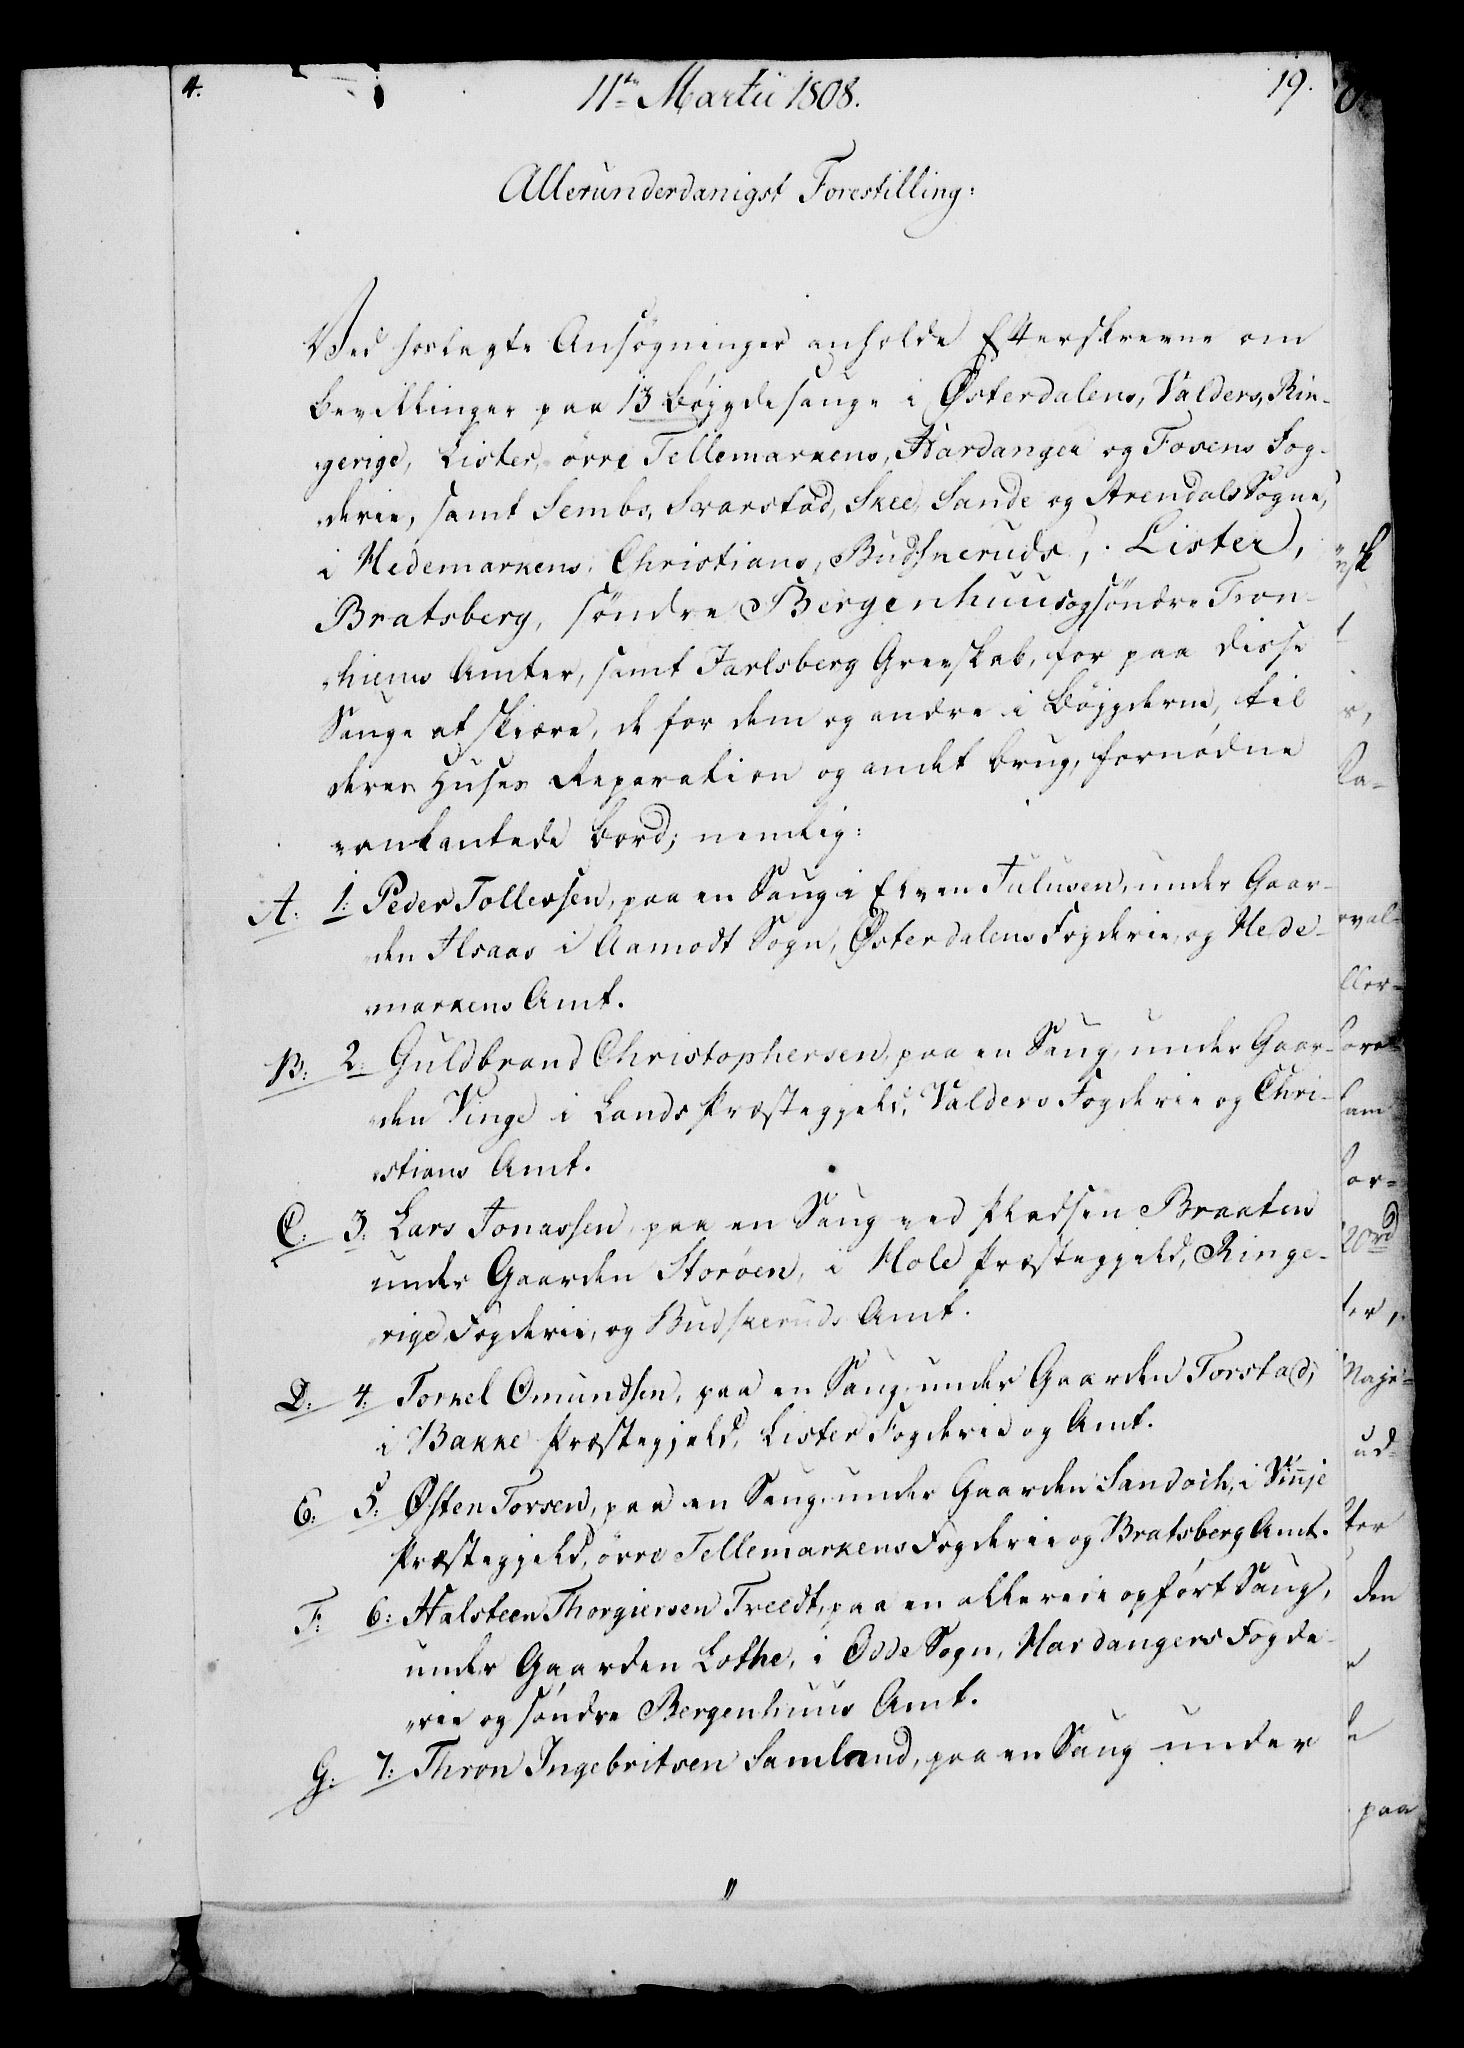 4.
11te Martii 1808.
19.
Allerunderdanigst Forestilling:
Ved hoslagte Ansøgninger anholde Efterskrevne om
bevillinger paa 13 bøjgdesauge i Østerdalens, Valders, Rin-
gerige, Lister, övre Tellemarkens, Hardanger og Fosens Fog-
derie, samt Sembs, Svarstad, Skee, Sande og Arendals Sogne,
i Hedemarkens, Christians, Budskeruds, Lister,
Bratsberg, söndre Bergenhuus og söndre Tron-
hiems Amter, samt Jarlsberg Grevskab, for paa disse
Sauge at skiære, de for dem og andre i bøjgderne, til
deres Huses Reparation og andet brug, fornødne
vankantede bord; nemlig:
A. 1: Peder Tollevsen, paa en Saug i Elven Julusen, under Gaar-
den Ilsaas i Aamodt Sogn, Østerdalens Fogderie, og Hede-
markens Amt.
B: 2: Guldbrand Christophersen, paa en Saug, under Gaar-
den Vinge i Lands Præstegjeld, Valders Fogderie og Chri-
stians Amt.
C: 3: Lars Jonassen, paa en Saug ved Pladsen Braaten
under Gaarden Storöen, i Hole Præstegjeld, Ringe-
rige Fogderie, og Budskeruds Amt.
D: 4: Torkel Omundsen, paa en Saug under Gaarden Torstad,
i Bakke Præstegjeld, Lister Fogderie og Amt.
E: 5: Østen Torsen, paa en Saug under Gaarden Sandoik, i Vinje
Præstegjeld, övre Tellemarkens Fogderie og Bratsberg Amt.
F: 6: Halsteen Thorgiersen Treedt, paa en allereie opført Saug,
under Gaarden Lothe, i Odde Sogn, Hardangers Fogde-
rie og søndre Bergenhuus Amt.
G: 7: Thron Ingebritsen Samland, paa en Saug under